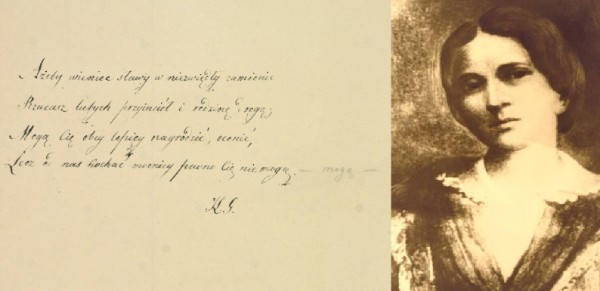 Ażeby wieniec sławy w niezwiędły zamienić
Rzucasz lubych przyjaciół i rodzinę drogą;
Mogą Cię obcy lepiej nagrodzić, ocenić,
Lecz od nas kochać mocniej pewno Cię nie mogą. — mogą —
K. G.